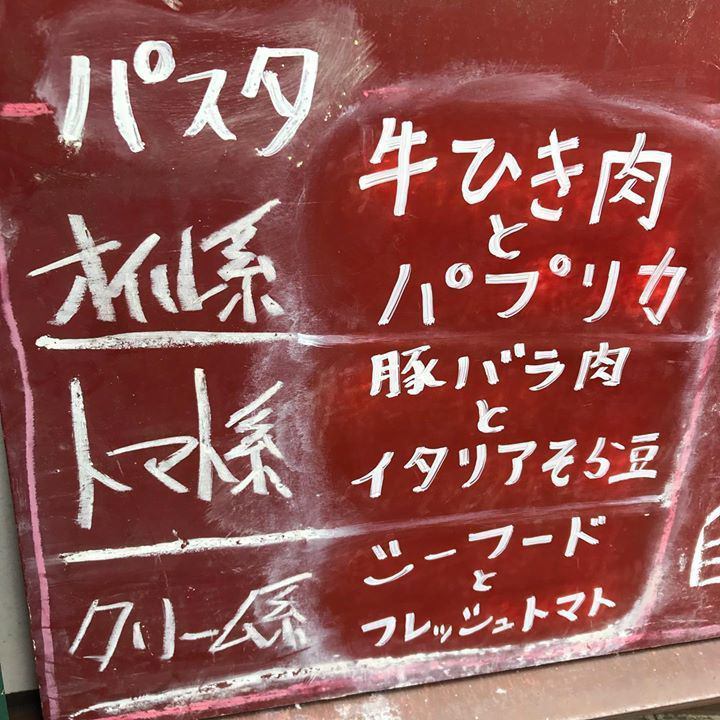 パスタ
オイル系
牛ひき肉
と
パプリカ
トマト系
豚バラ肉
と
イタリアそら豆
クリーム系
シーフード
と
フレッシュトマト